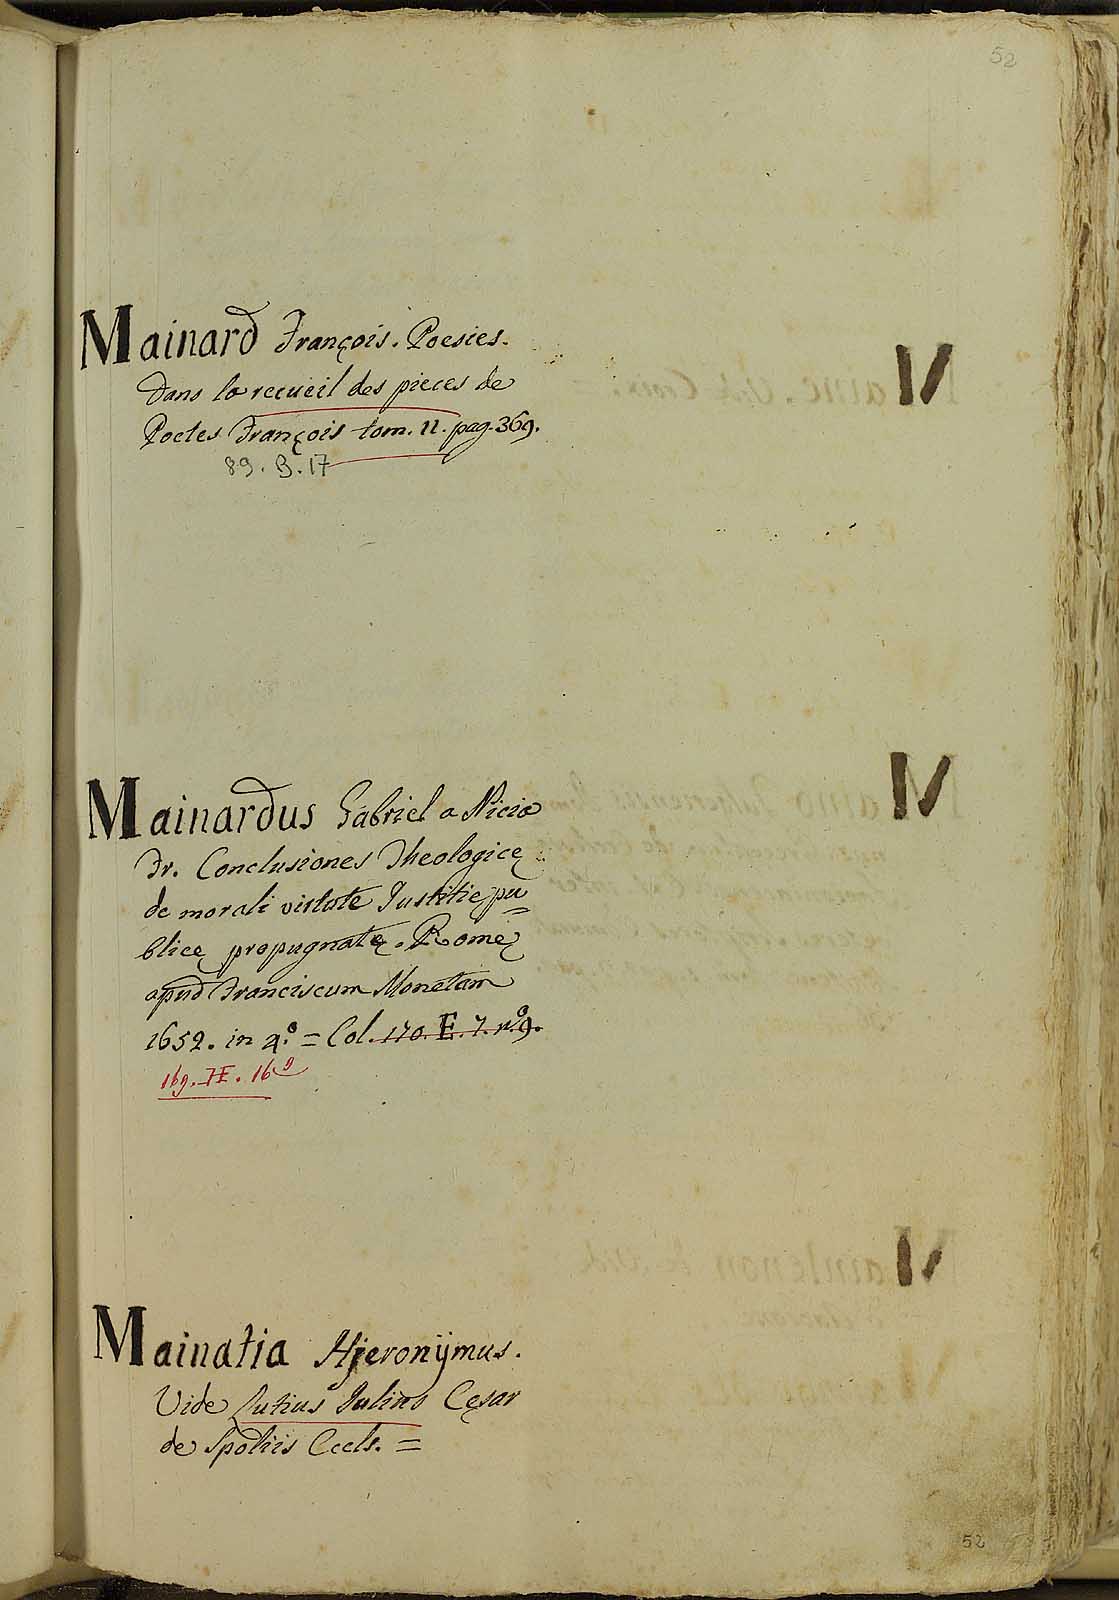 52
Mainard François. Poesies.
Dans la recueil des pieces de
Poetes François tom. II. pag. 369.
89. B. 17
Mainardus Gabriel a Nicia
Dr. Conclusiones Theologicę
de morali virtute Justitię pu=
blicę propugnatę. Romę
apud Franciscum Monetam
1652. in 4.º = Col. 170. E. 7. nº. 9.
169. E. 16
Mainatia Hjeronÿmus.
Vide Julius Cęsar
de Spoliis Eccls. =
52